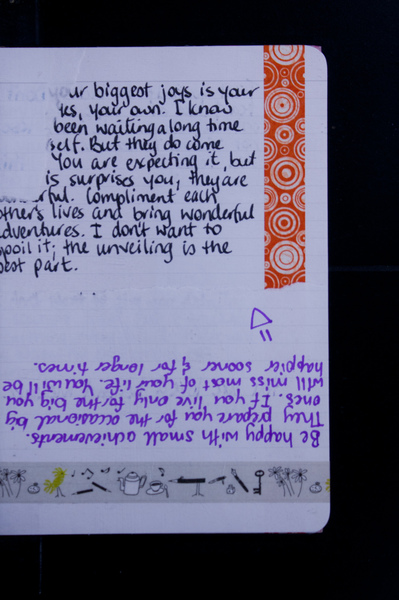 ur biggest joys is your
own. I know
been waiting a long time
self. But they do come
You are expecting it, but
is surprises you, they are
erful. Compliment each
others lives and bring wonderful
adventures. I don't want to
spoil it, the unveiling is the
best part.
Be happy with small achievements.
They prepare you for the occasional big
ones. If you live only for the big you
will miss most of your life. You will be
happier sooner & for longer times.